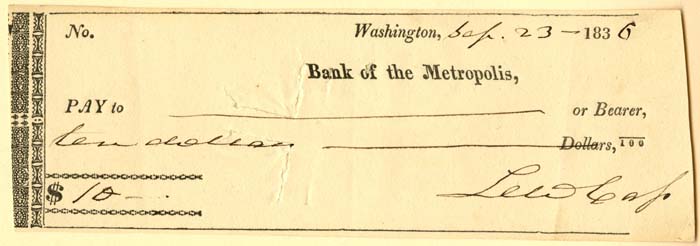 No. Washington, Sep. 23 - 1836
Bank of the Metropolis,
PAY to or Bearer,
ten dollars Dollars, 100
$ 10 -
Lew Cass